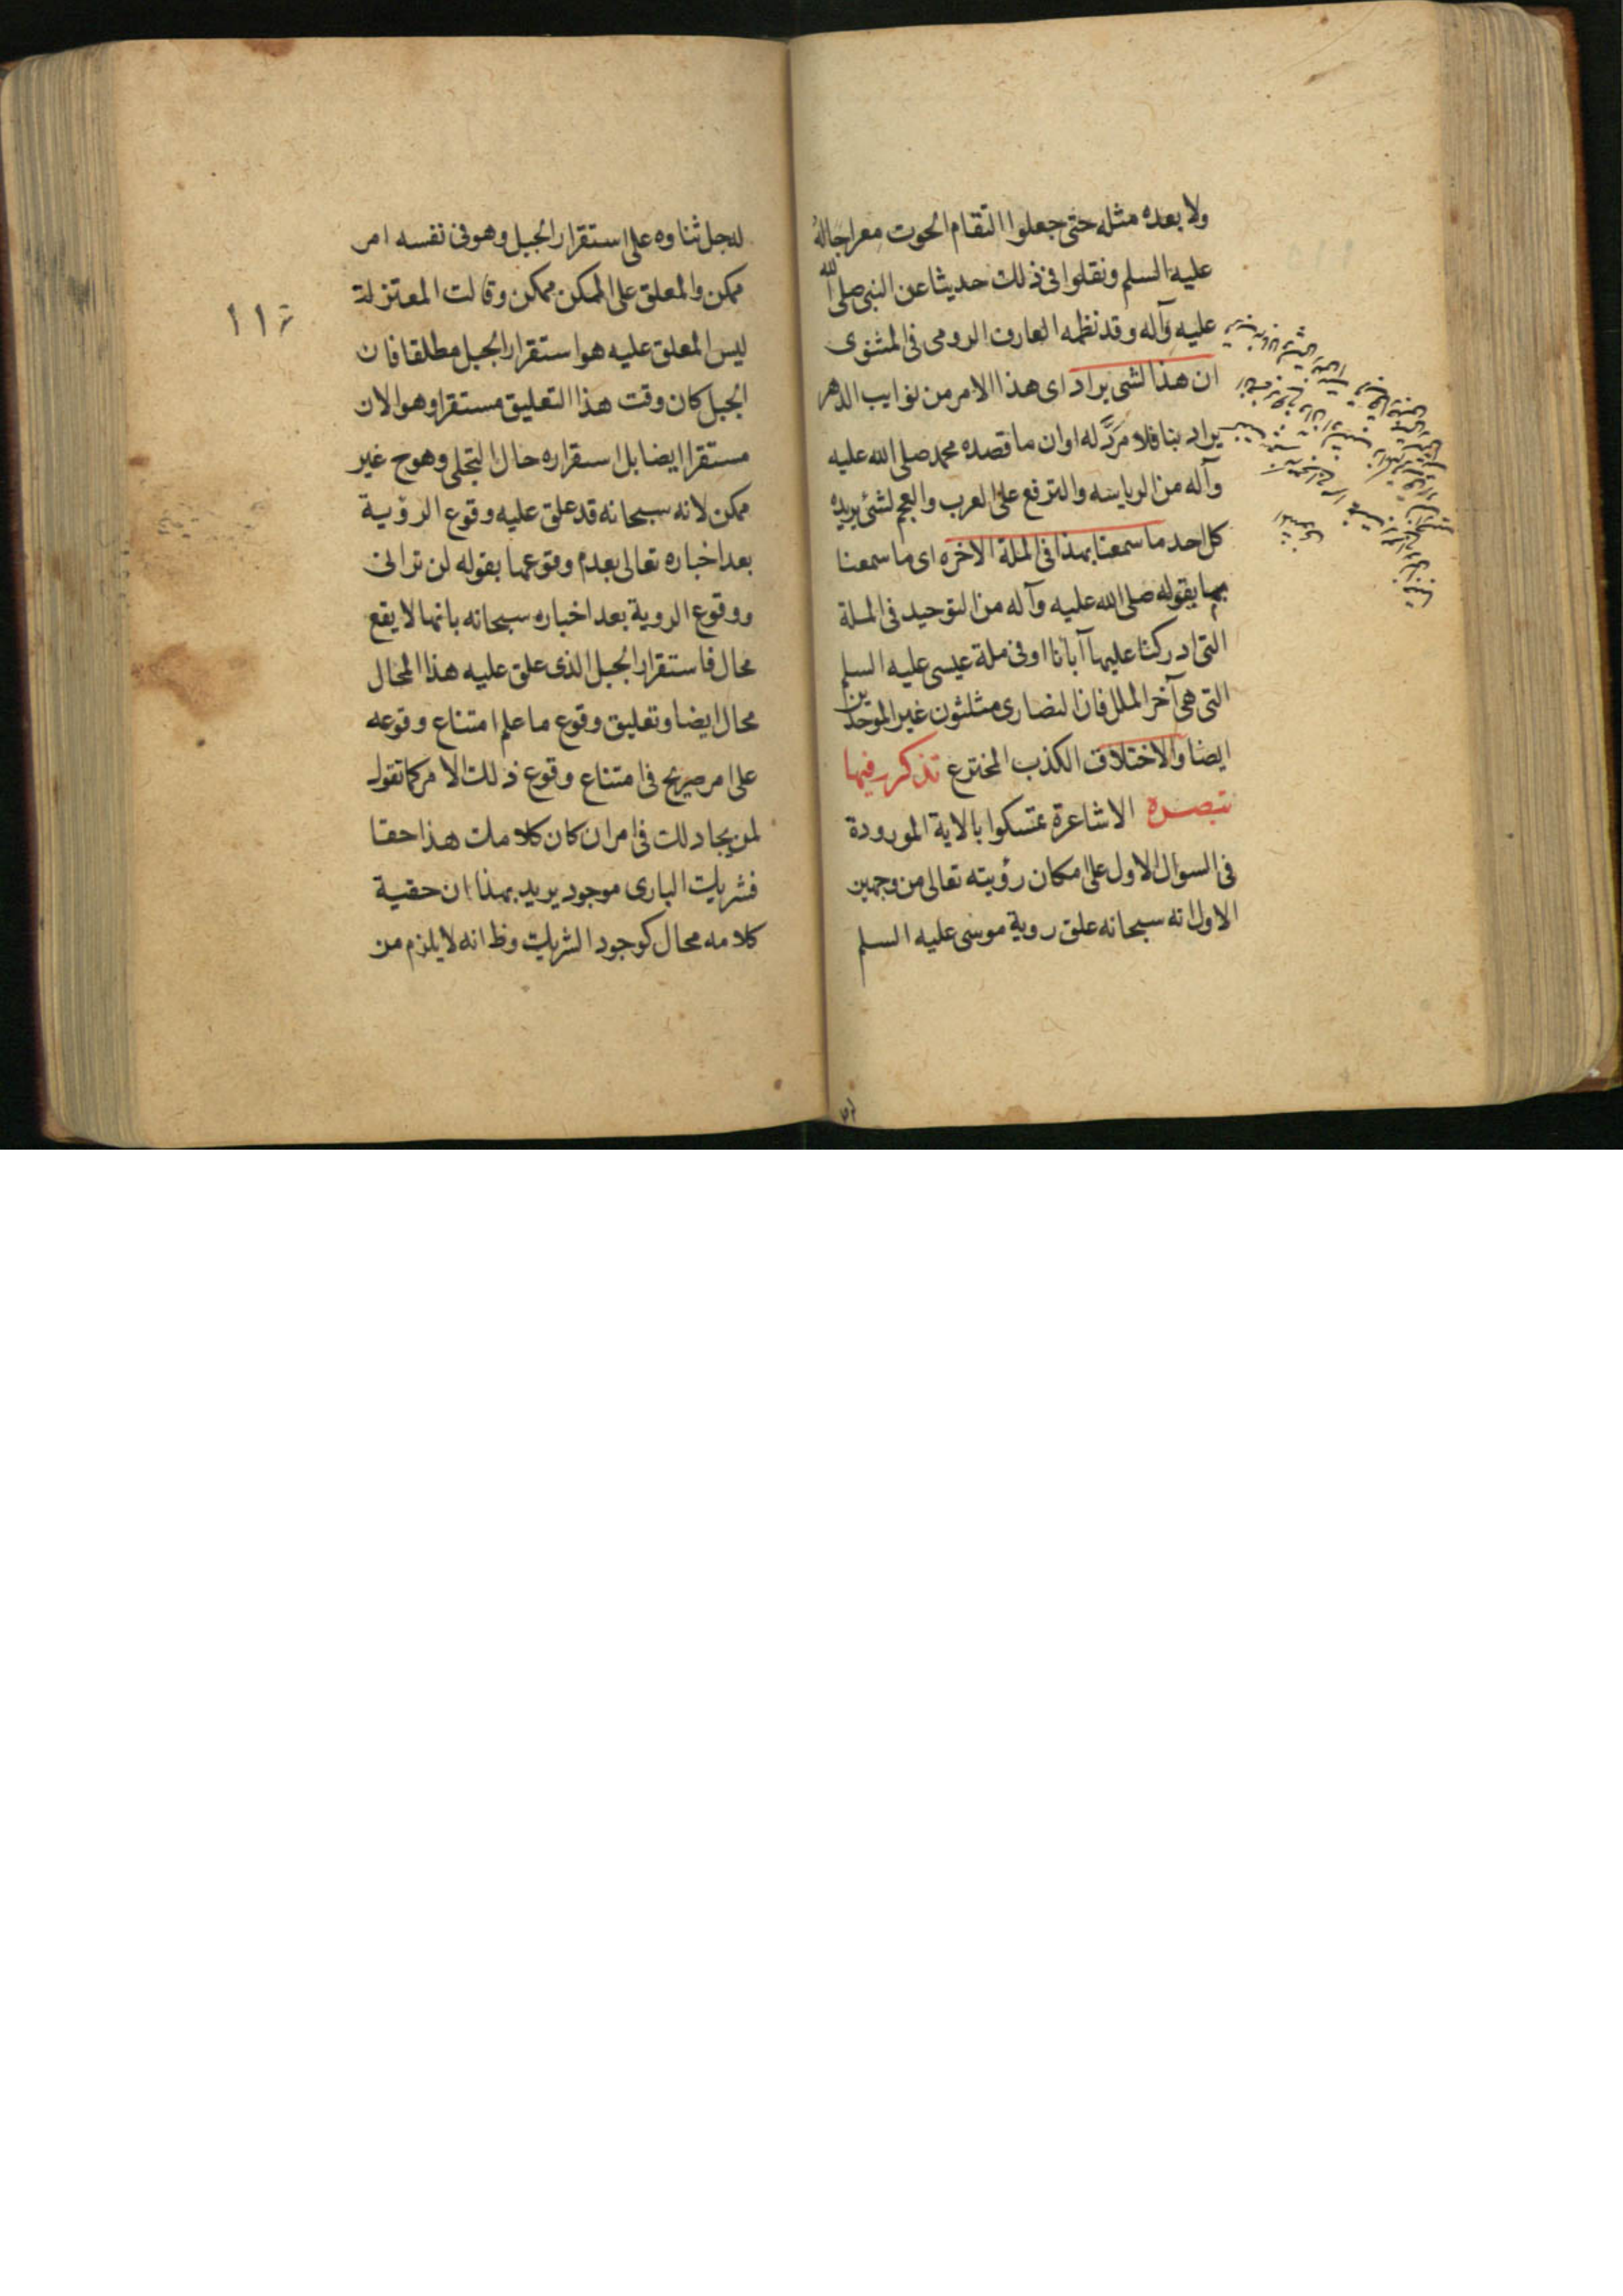 ولا بعده مثله حتى جعلوا التقام الحوت معراجا له
عليه السلم ونقلوا فى ذلك حديثا عن النبى صلى الله
عليه وآله وقد نظمه العارف الرومى فى المثنوى
ان هذا لشى يراد اى هذا الامر من نوايب الدهر
يراد بنا فلا مردّ له او ان ما قصده محمد صلى الله عليه
وآله من الرياسه والترفع على العرب والعجم لشئ يريده
كل احد ما سمعنا بهذا فى الملة الاخره اى ما سمعنا
بما يقوله صلى الله عليه وآله من التوحيد فى الملة
التى ادركنا عليها آبانا او فى ملة عيسى عليه السلم
التى هى آخر الملل فان النصارى مثلثون غير الموحدين
ايضا والاختلاق الكذب المخترع تذكر فيها
تبصره الاشاعرة تمسكوا بالاية المورودة
فى السوال الاول على امكان رؤيته تعالى من وجهين
الاول انه سبحانه علق روية موسى عليه السلم
لوجل ثناوه على استقرار الجبل وهو فى نفسه امر
ممكن والمعلق على الممكن ممكن وقالت المعتزلة
ليس المعلق عليه هو استقرار الجبل مطلقا فان
الجبل كان وقت هذا التعليق مستقرا وهو الان
مستقرا ايضا بل استقراره حال التجلى وهو ح غير
ممكن لانه سبحانه قد علق عليه وقوع الرؤية
بعد اخباره تعالى بعدم وقوعها بقوله لن ترانى
ووقوع الروية بعد اخباره سبحانه بانها لا يقع
محال فاستقرار الجبل الذى علق عليه هذا المحال
محال ايضا وتعليق وقوع ما علم امتناع وقوعه
على امر صريح فى امتناع وقوع ذلك الامر كما تقول
لمن يجادلك فى امر ان كان كلامك هذا حقا
فشريك البارى موجود يريد بهذا ان حقية
كلامه محال كوجود الشريك وظ انه لا يلزم من